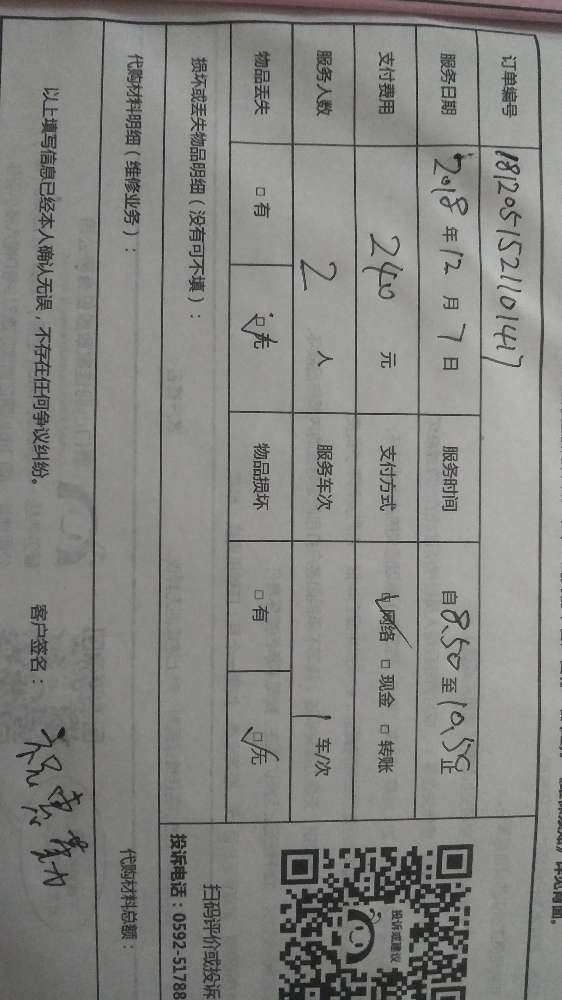 订单编号 1812051521101447
服务日期 2018年12月7日 服务时间 自8.50至10.50止
支付费用 240元 支付方式 ☑网络 □现金 □转账
服务人数 2人 服务车次 1车/次
物品丢失 □有 ☑无 物品损坏 □有 ☑无
损坏或丢失物品明细（没有可不填）：
代购材料明细（维修业务）： 代购材料总额：
以上填写信息已经本人确认无误，不存在任何争议纠纷。 客户签名：
投诉或建议
扫码评价或投诉
投诉电话：0592-51788